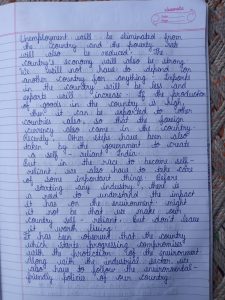 classmate
Unemployment will be eliminated from
the country and the poverty rate
will also be reduced. The
country's economy will also be strong
We will not have to depend on
another country for anything. Imports
in the country will be less and
exports will increase. If the production
of goods in the country is high,
then it can be exported to other
countries also, so that the foreign
currency also come in the country
Recently, other steps have been also
taken by the government to create
a self-reliant India.
But in the race to become self-
reliant we also have to take care
of some important things. Before
starting any industry, there is
a need to understand the impact
it has on the environment might
it not be that we make our
country self-reliant but don't leave
it worth living
It has been observed that the country
which starts progressing compromises
with the protection of the environment
Along with the industrial sector we
also have to follow the environmental
friendly policies of our country.